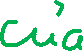 của